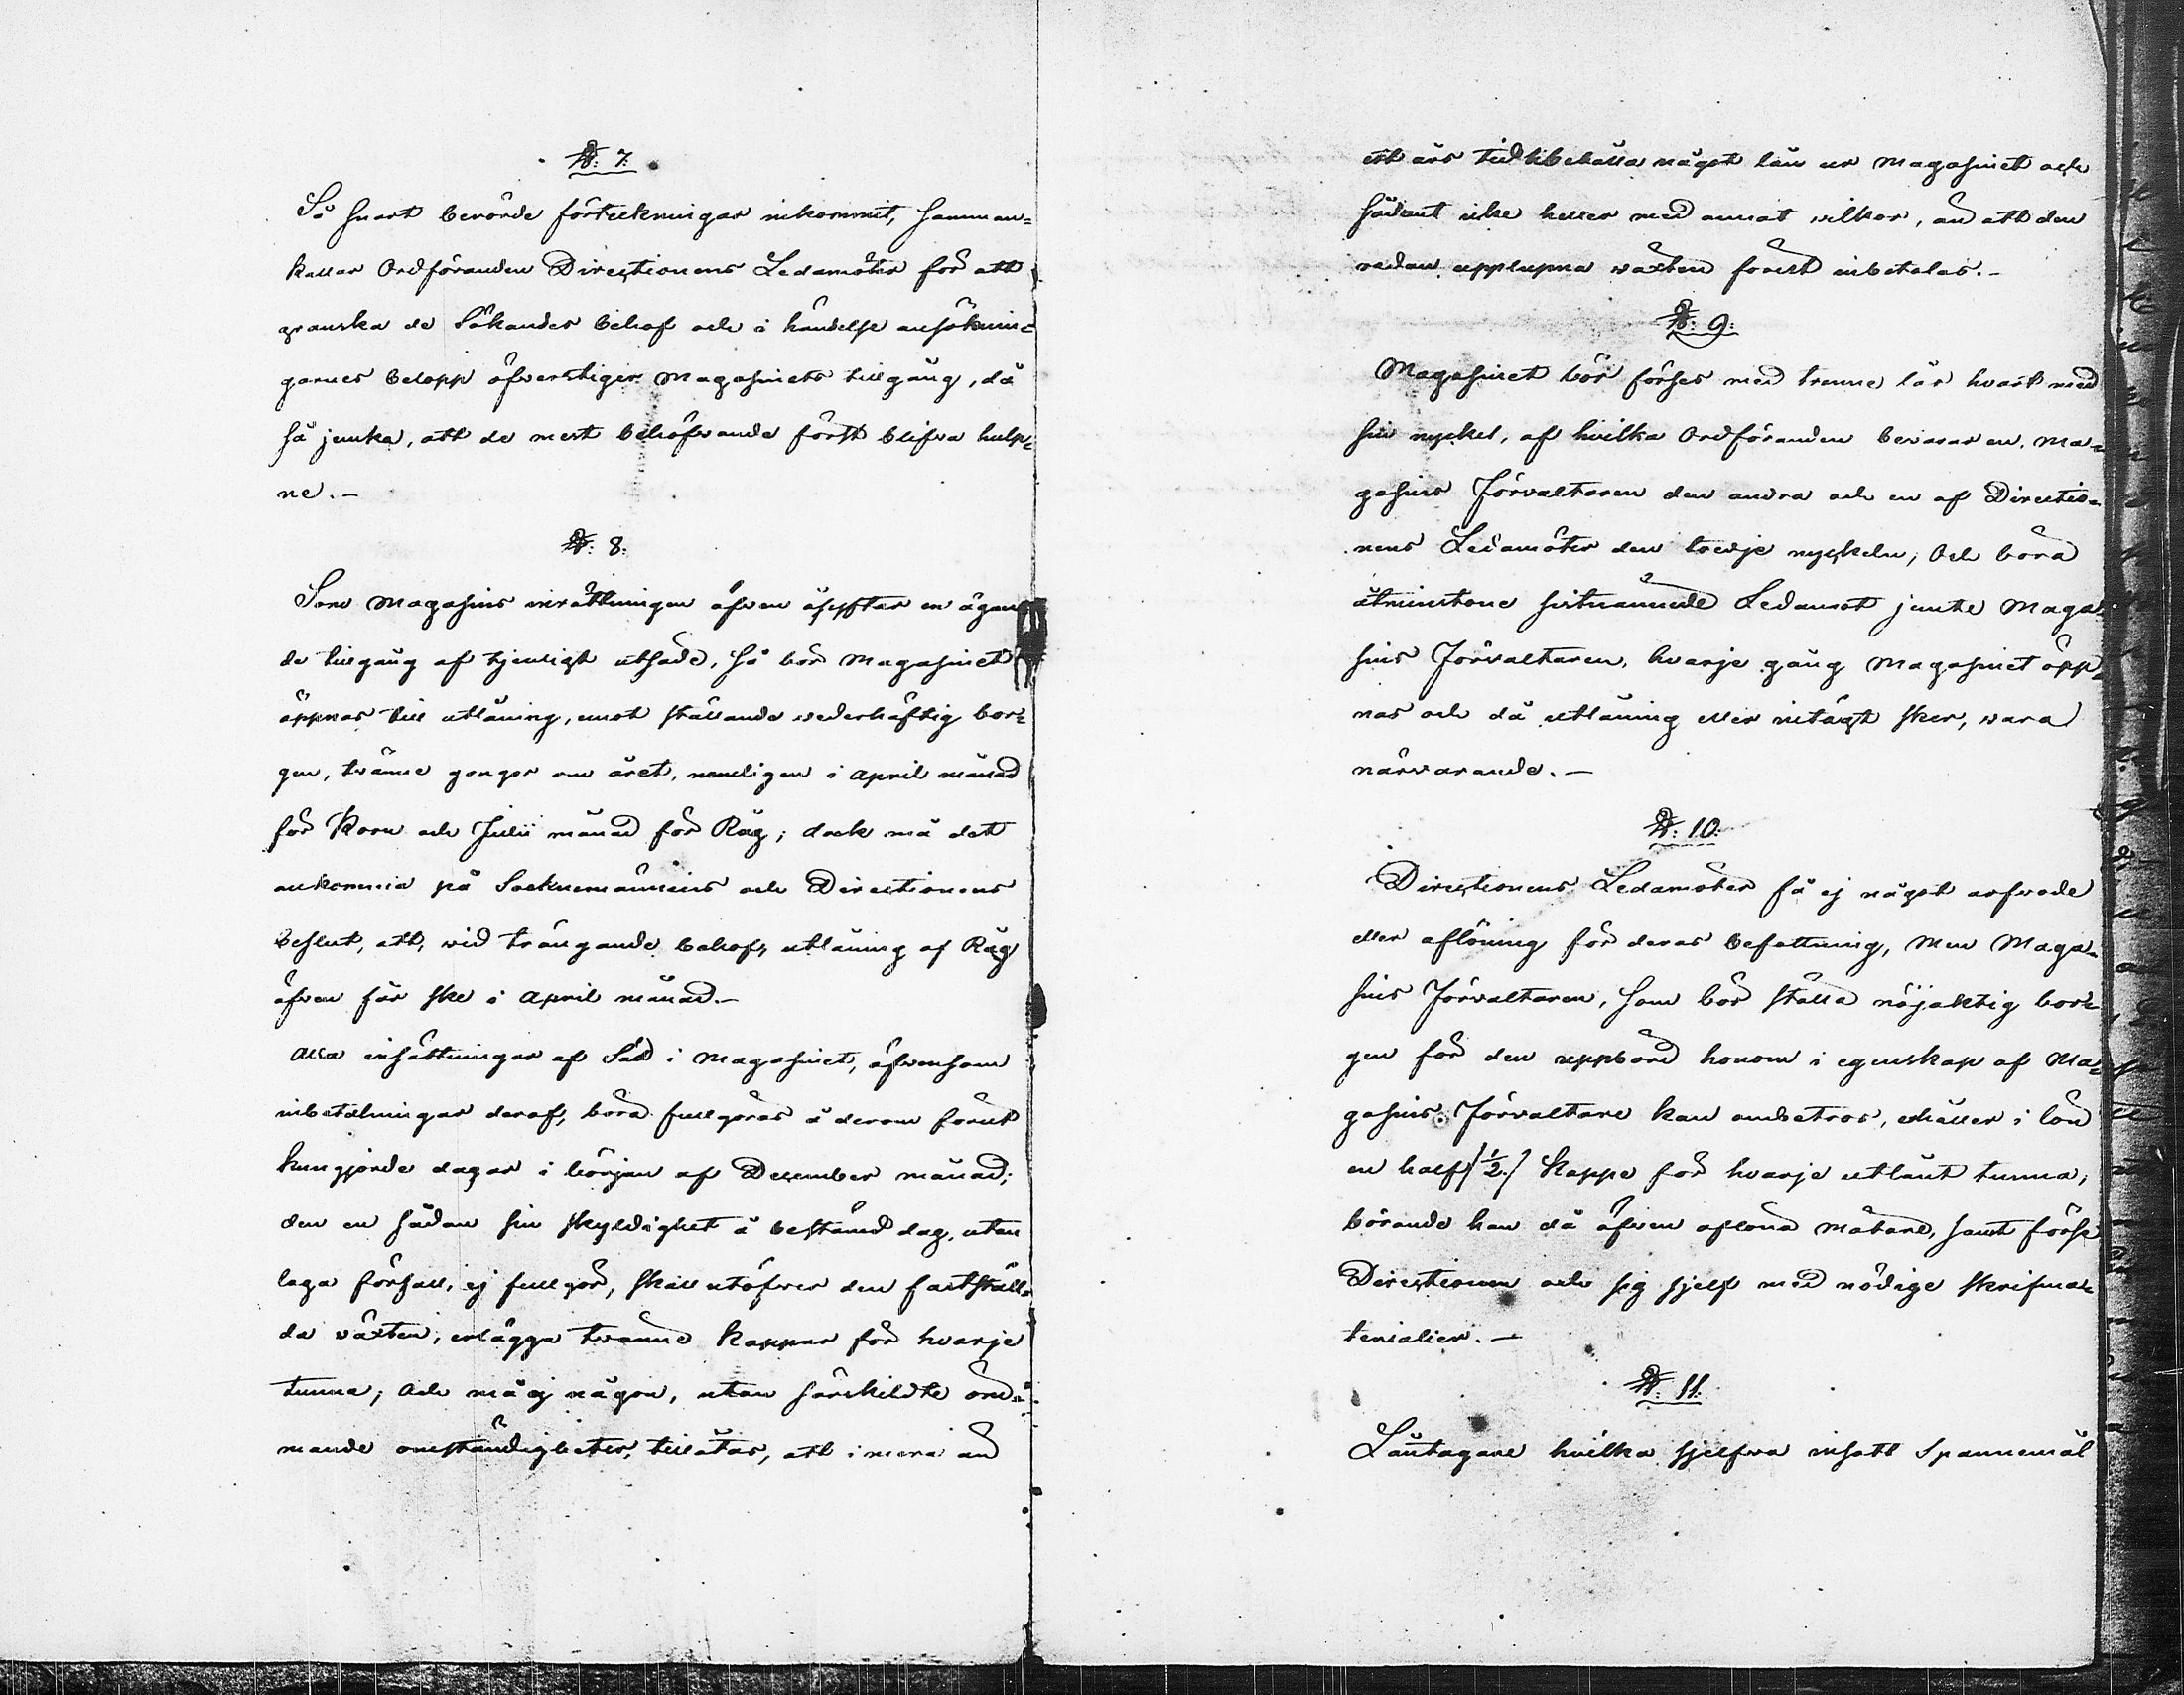 §: 7.
Så snart berörde förteckningar inkommit, samman=
kallar Ordföranden Directionens Ledamöter för att
granska de Sökandes behof och i händelse ansöknin=
garnes belopp öfverstiger Magasinets tillgång, då
så jemka, att de mest behöfvande först blifva hulp=
ne.-
§: 8.
Som Magasins inrättningen äfven åsyftar en ägan=
de tillgång af tjenligt utsäde, så bör Magasinet
öppnas till utlåning, emot ställande vederhäftig bor=
gen, tvänne gongor om året, nemligen i April månad
för Korn och Julii månad för Råg; dock må det
ankomma på Socknemännens och Directionens
beslut, att, vid trängande behof, utlåning af Råg
äfven får ske i April månad.-
Alla insättningar af Säd i Magasinet, äfvensom
inbetalningar deraf, böra fullgöras å derom förut
kungjorde dagar i början af December månad;
den en sådan sin skyldighet å bestämd dag, utan
laga förfall, ej fullgör, skall utöfver den fastställ=
da växten, erlägga tvänne Kappar för hvarje
tunna; och må ej någon, utan särskildte öm=
mande omständigheter, tillåtas, att i mera än
ett års tid bibehålla något lån ur Magasinet och
sådant icke heller med annat vilkor, än att den
redan upplupna växten förest inbetalas.-
§: 9:
Magasinet bör förses med trenne lås hvart med
sin nyckel, af hvilka Ordföranden bevarar en, Ma=
gasins Förvaltaren den andra och en af Directio=
nens Ledamöter den tredje nyckeln; Och böra
åtminstone sistnämnde Ledamot jemte Maga=
sins Förvaltaren, hvarje gång Magasinet öpp=
nas och då utlåning eller intägt sker, vara
närvarande.-
§: 10:
Directionens Ledamöter få ej något arfvode
eller aflöning för deras befattning, Men Maga=
sins Förvaltaren, som bör ställa nöjaktig bor=
gen för den uppbörd honom i egenskap af Ma=
gasins Förvaltare kan anbetros, erhåller i lön
en half /½./ Kappe för hvarje utlånt tunna,
börande han då äfven aflöna mätare, samt förse
Directionen och sig sjelf med nödige skrifma=
terialier.-
§: 11.
Låntagare hvilka sjelfva insatt Spannemål